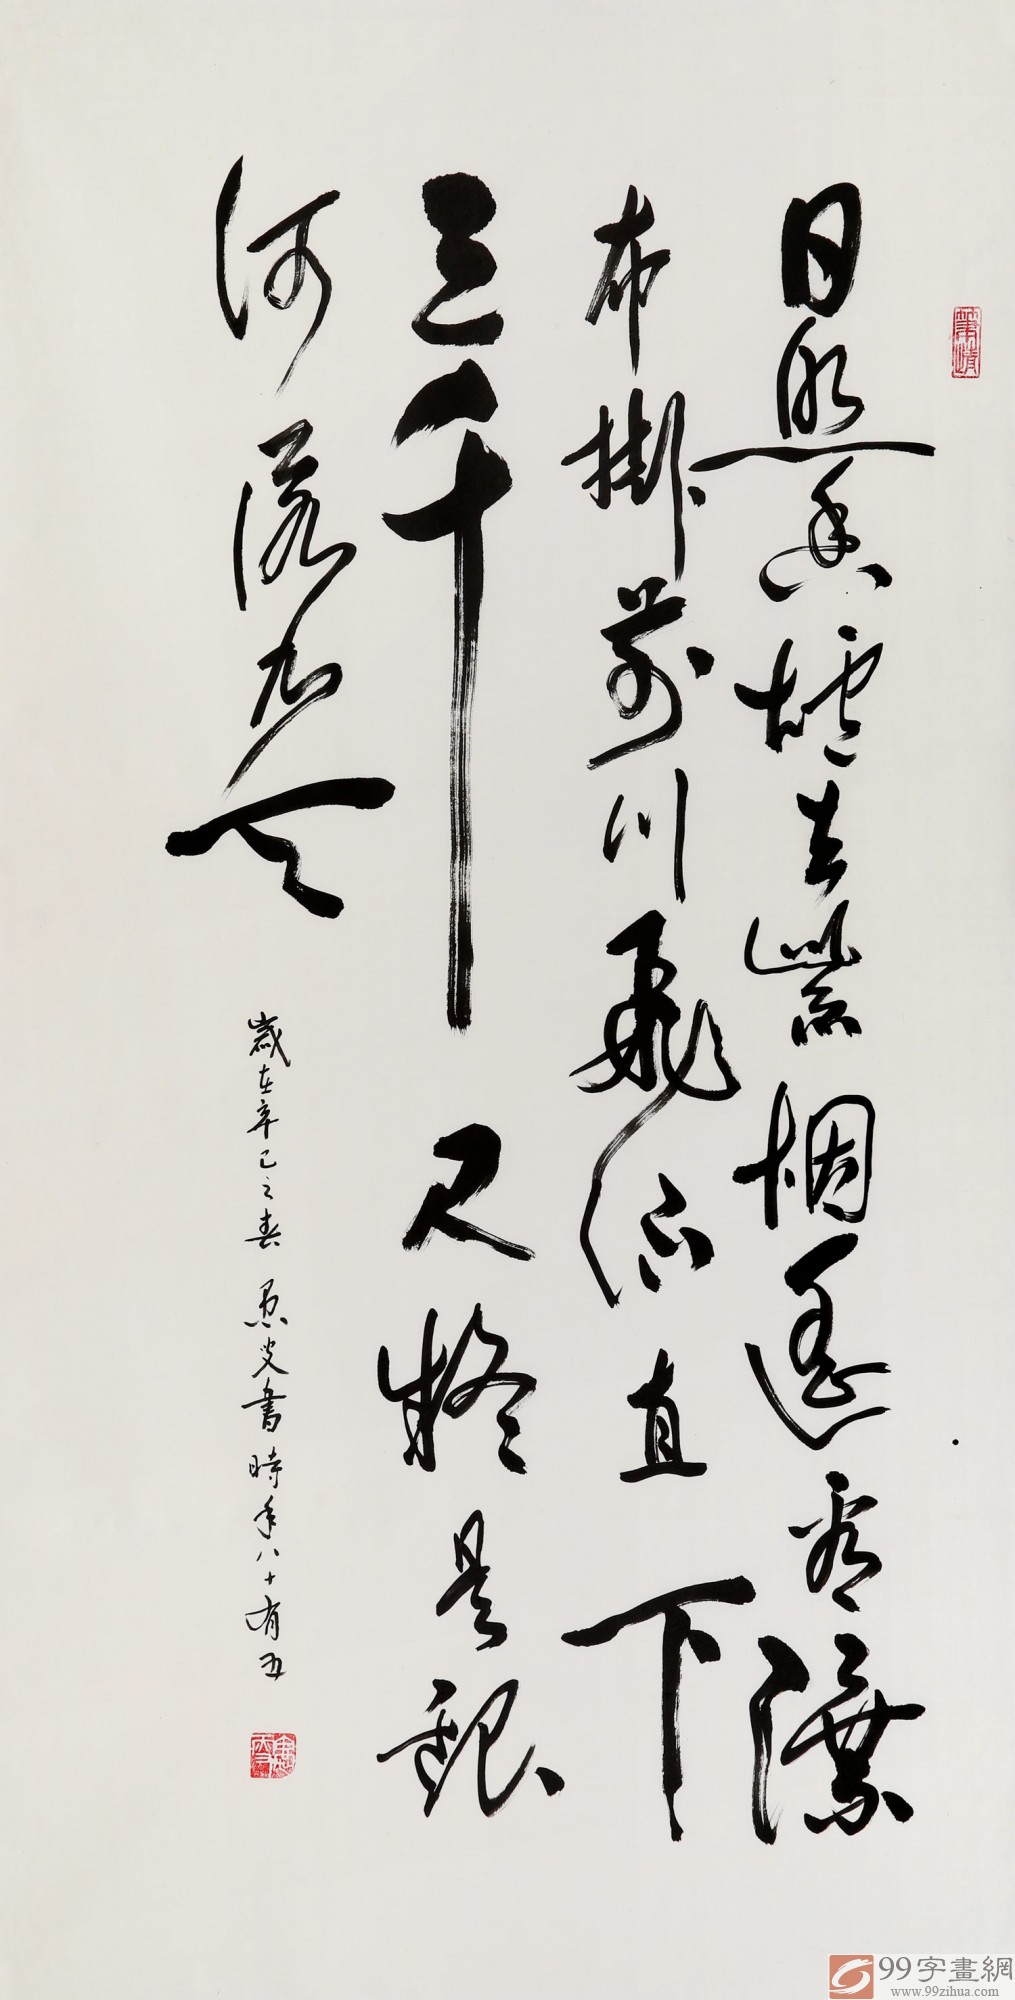 日照香爐生紫烟遙看瀑
布掛前川飛流直下
三千尺疑是銀
河落九天
歲在辛巳之春 愚叟書時年八十有五
99字畫網
www.99zihua.com